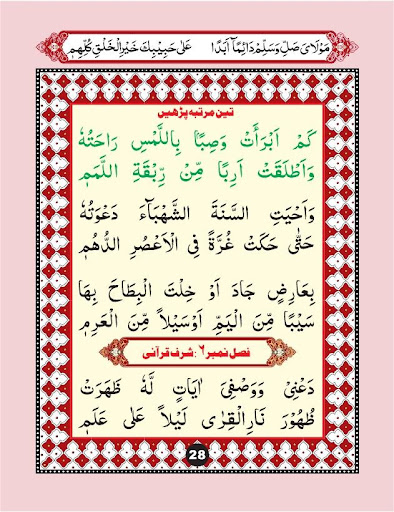 مَوْلَایَ صَلِّ وَسَلِّمْ دَائِمًا اَبَدًا عَلٰی حَبِیْبِكَ خَیْرِ الْخَلْقِ كُلِّهِمٖ
تین مرتبہ پڑھیں
كَمْ اَبْرَأَتْ وَصِبًا بِاللَّمْسِ رَاحَتُهٗ
وَاَطْلَقَتْ اَرِبًا مِّنْ رِّبْقَةِ اللَّمَمٖ
وَاَحْیَتِ السَّنَةَ الشَّهْبَآءَ دَعْوَتُهٗ
حَتّٰی حَكَتْ غُرَّةً فِی الْاَعْصُرِ الدُّهُمٖ
بِعَارِضٍ جَادَ اَوْ خِلْتَ الْبِطَاحَ بِهَا
سَیْبًا مِّنَ الْیَمِّ اَوْسَیْلًا مِّنَ الْعَرِمٖ
فصل نمبر ٦: شرف قرآنی
دَعْنِیْ وَوَصْفِیْ اٰیَاتٍ لَّهٗ ظَهَرَتْ
ظُهُوْرَ نَارِالْقِرٰی لَیْلًا عَلٰی عَلَمٖ
28